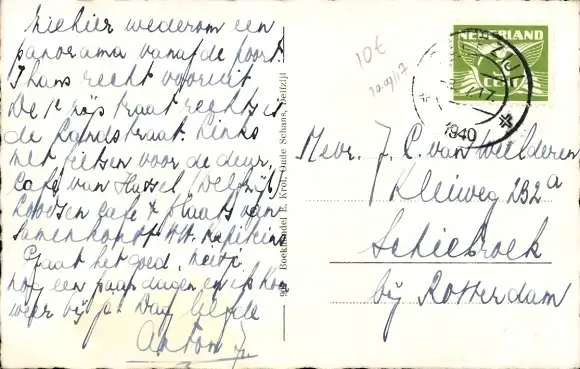 Ziehier wederom een
panorama vanaf de poort
Thans recht vooruit
De 1e zijstraat rechts is
de Landstraat. Links
met fietsen voor de deur,
Café van Hassel (Delfzijl)
Loodsen café & plaats van
samenkomst H.H. Kapiteins
Gaat het goed,
nog een paar dagen en ik kom
weer bij je. Dag liefde
Anton
Boekhandel E. Krol, Oude Schans, Delfzijl
10€
NEDERLAND
CENT
1940
Mevr. J. C. van Weelderen
Kleiweg 232a
Schiebroek
bij Rotterdam